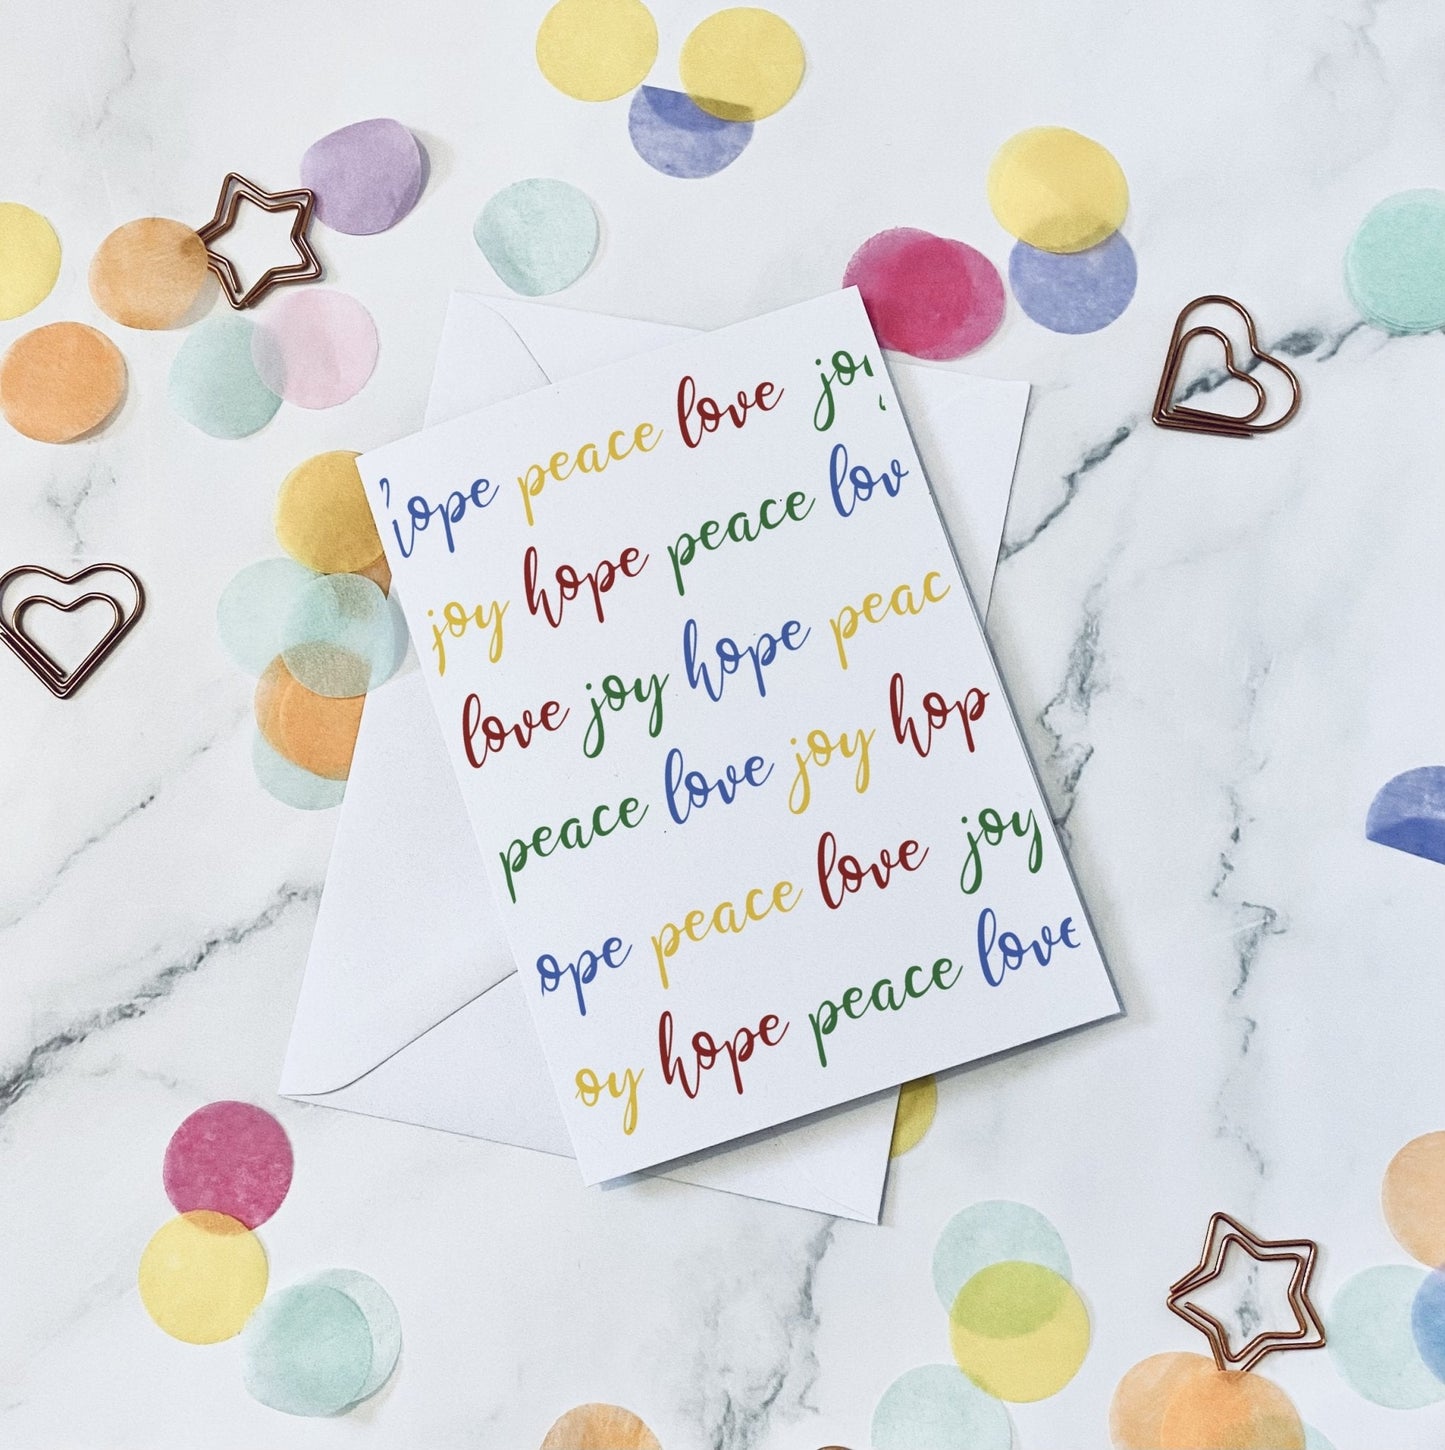 ope peace love joy
joy hope peace lov
love joy hope peac
peace love joy hop
ope peace love joy
oy hope peace love